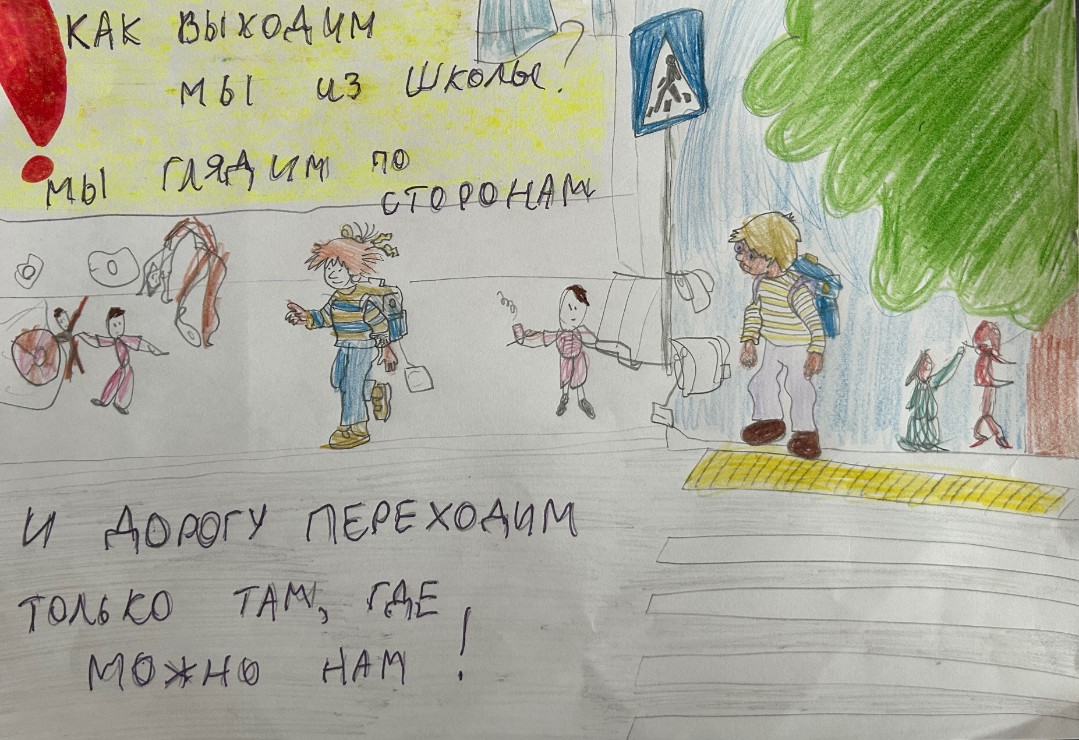 КАК ВЫХОДИМ
МЫ ИЗ ШКОЛЫ?
МЫ ГЛЯДИМ ПО
СТОРОНАМ
И ДОРОГУ ПЕРЕХОДИМ
ТОЛЬКО ТАМ, ГДЕ
МОЖНО НАМ!